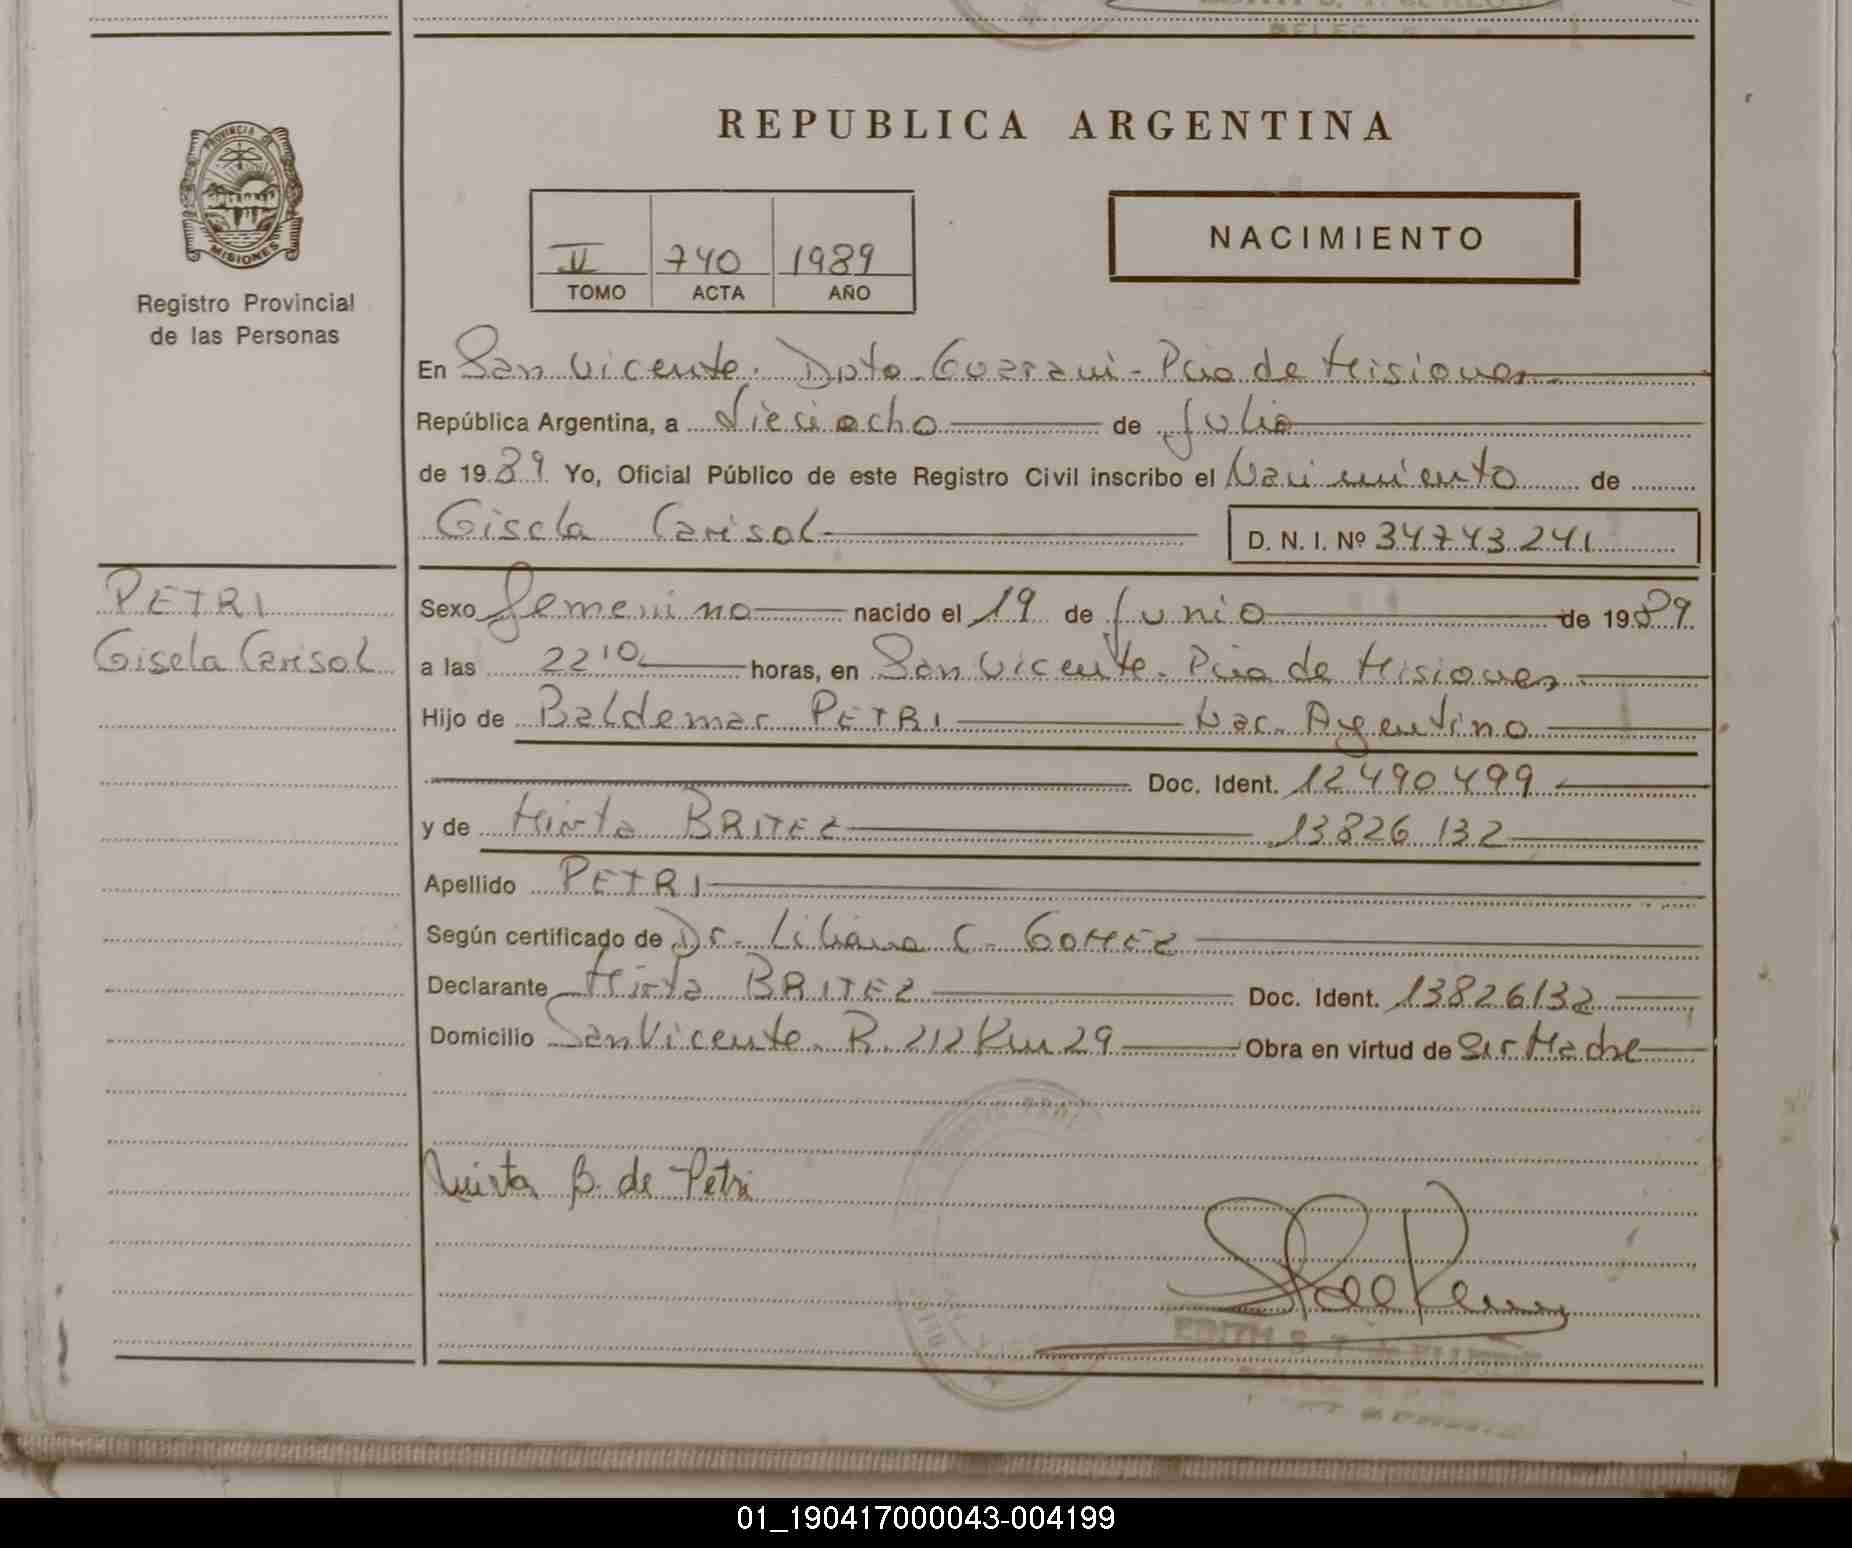 REPUBLICA ARGENTINA
PROVINCIA DE
MISIONES
Registro Provincial
de las Personas
II 740 1989
TOMO ACTA AÑO
NACIMIENTO
En San Vicente. Dpto. Guarani - Pcia de Misiones
República Argentina, a dieciocho de Julio
de 1989 Yo, Oficial Público de este Registro Civil inscribo el Nacimiento de
Gisela Carisol D. N. I. Nº 34743241
PETRI
Gisela Carisol
Sexo femenino nacido el 19 de Junio de 1989
a las 22 10 horas, en San Vicente. Pcia de Misiones
Hijo de Baldemar PETRI Nac. Argentino
Doc. Ident. 12490499
y de Mirta BRITEZ 13826132
Apellido PETRI
Según certificado de Dr. Liliana C. GOMEZ
Declarante Mirta BRITEZ Doc. Ident. 13826132
Domicilio San Vicente. R. 212 Km 29 Obra en virtud de Ser Madre
Mirta B. de Petri
EDITH S.
01_190417000043-004199